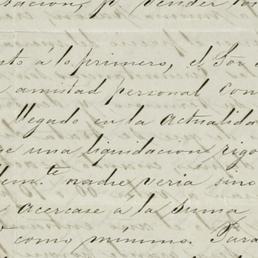 vender
to á lo primero, el Sor
amistad personal con
llegado en la actualida
e una liquidacion rigo
te nadie veria sino
acercase á la suma
como mínimo. Para